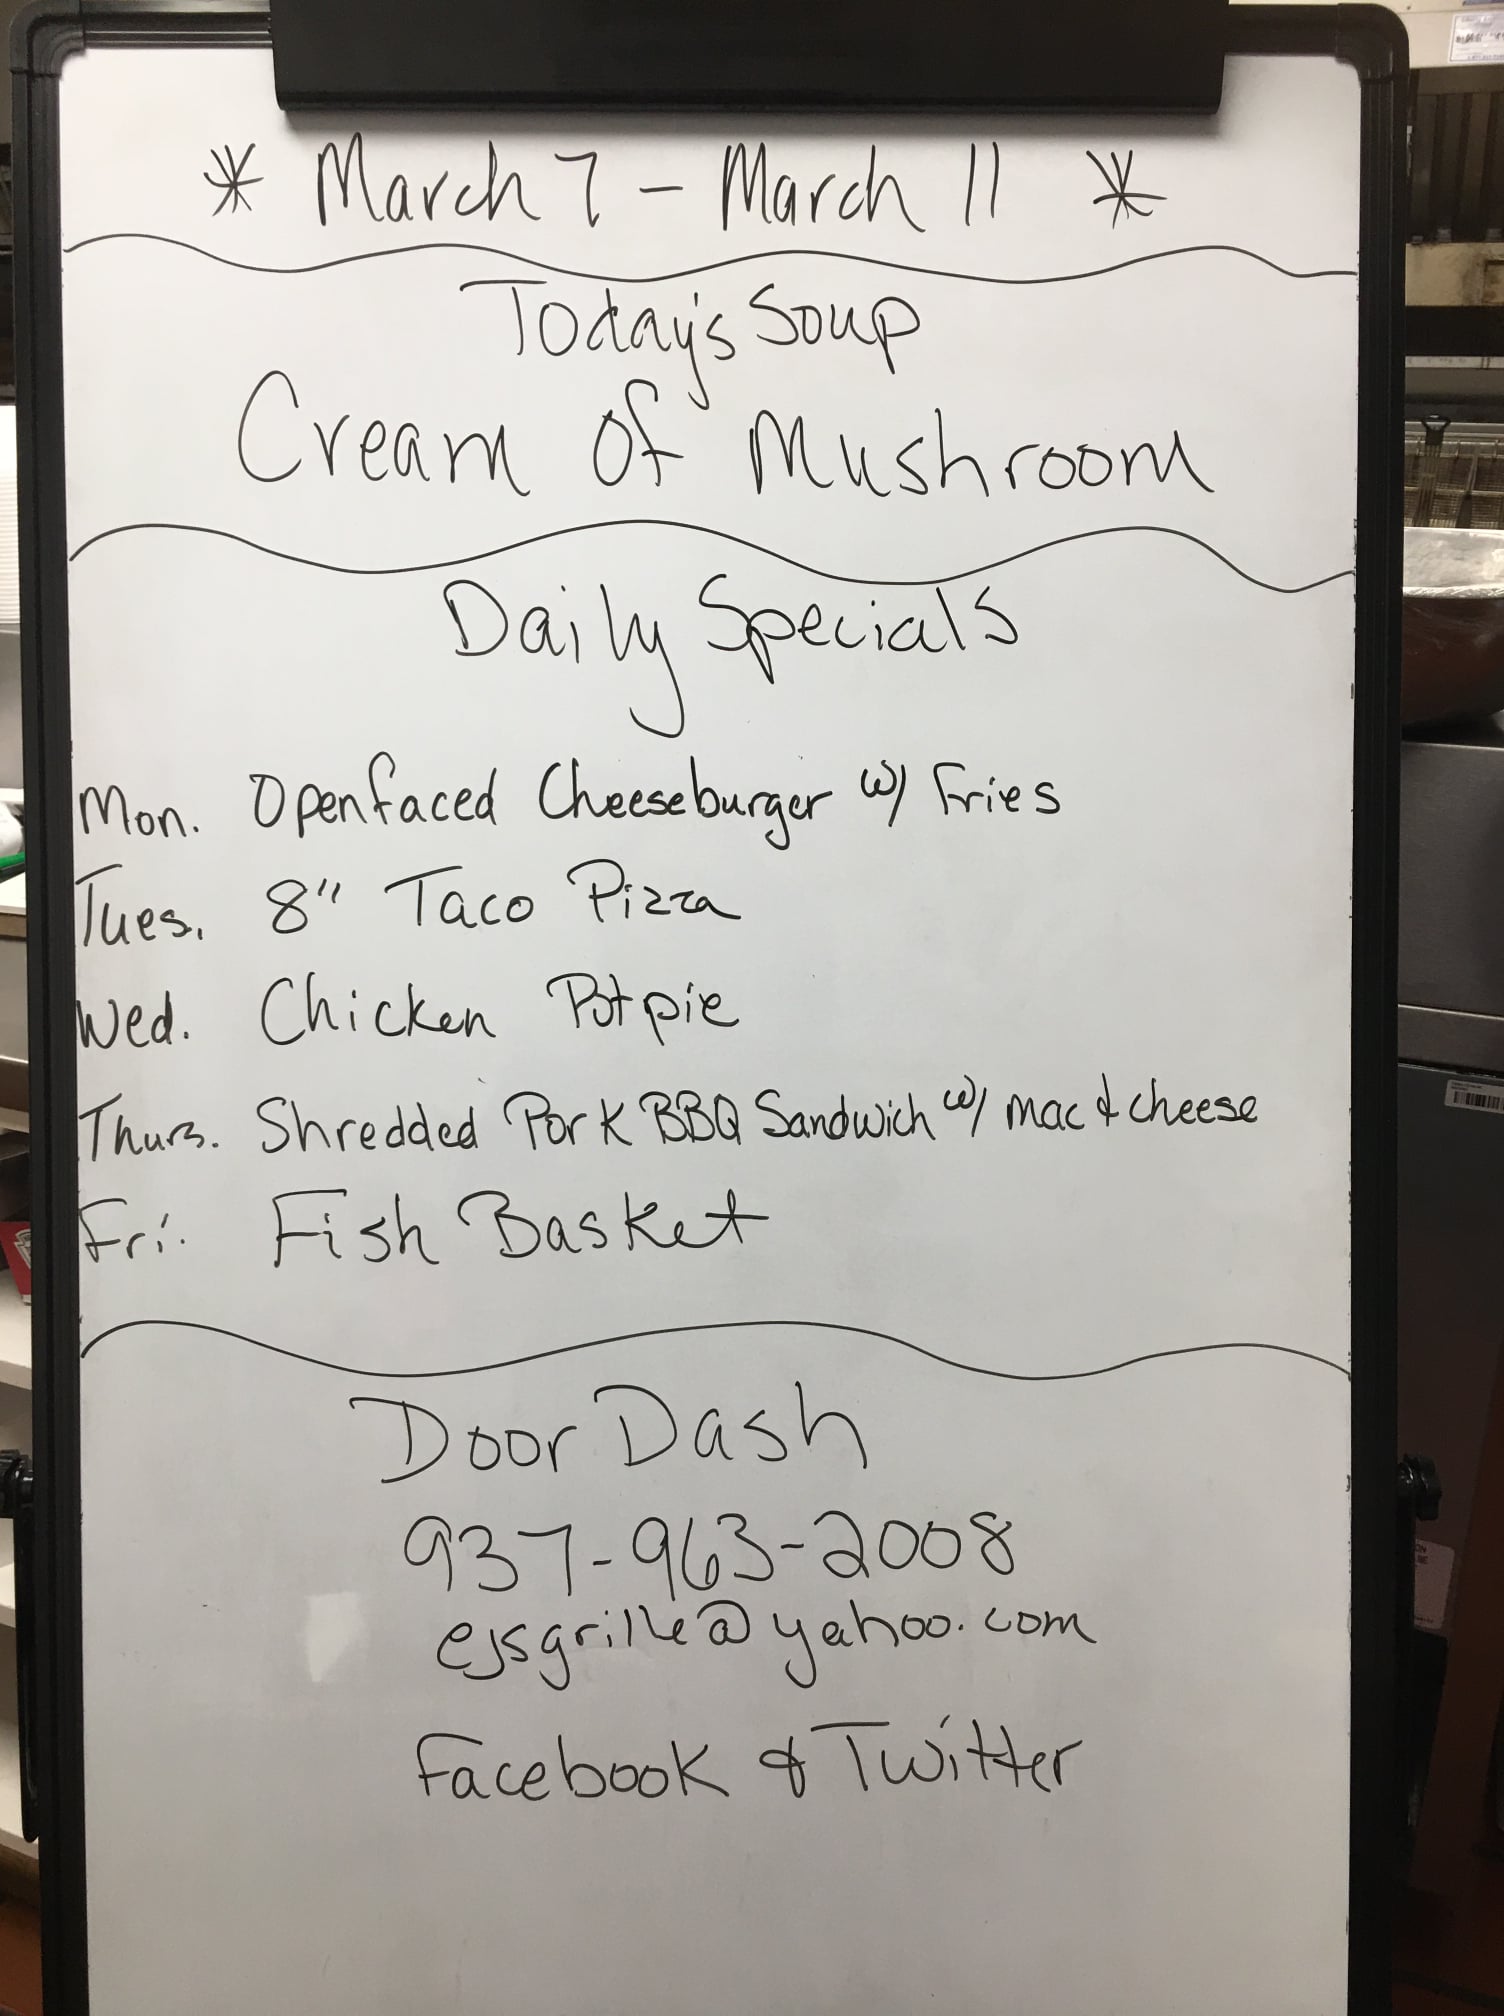 * March 7 - March 11 *
Today's Soup
Cream of Mushroom
Daily Specials
Mon. Openfaced Cheeseburger w/ Fries
Tues. 8" Taco Pizza
Wed. Chicken Potpie
Thurs. Shredded Pork BBQ Sandwich w/ mac & cheese
Fri. Fish Basket
Door Dash
937-963-2008
ejsgrille@yahoo.com
Facebook & Twitter